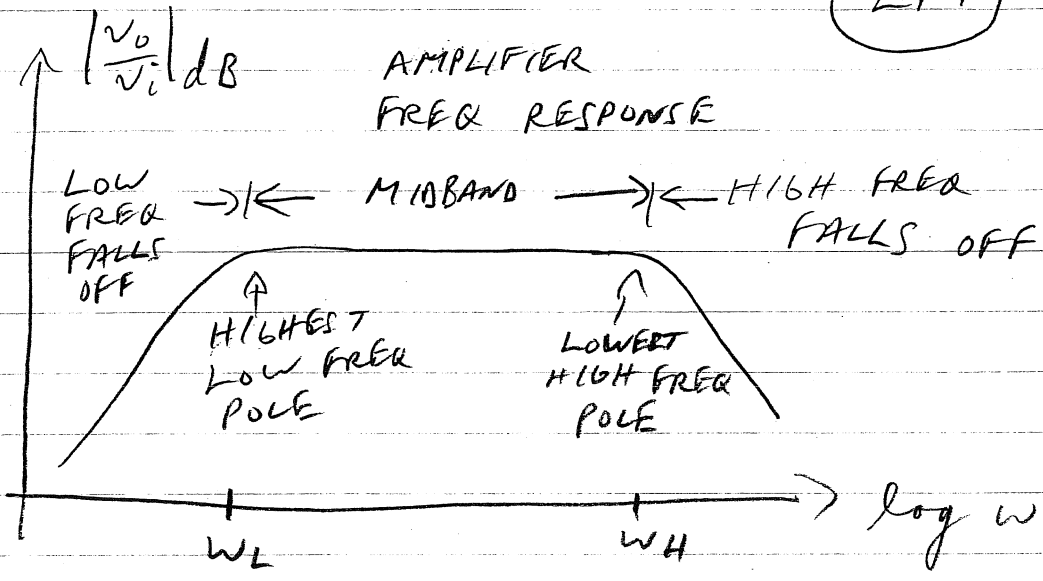 |vo/vi| dB
AMPLIFIER
FREQ RESPONSE
LOW
FREQ
FALLS
OFF
MIDBAND
HIGH FREQ
FALLS OFF
HIGHEST
LOW FREQ
POLE
LOWERT
HIGH FREQ
POLE
log w
WL
WH